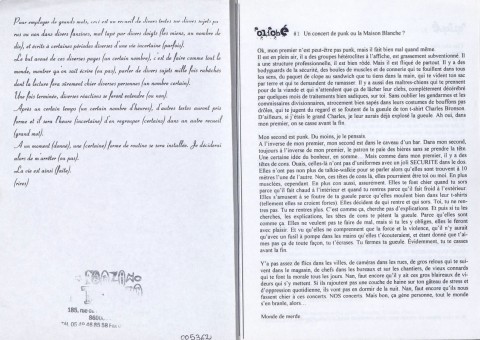 Pour employer de grands mots, ceci est un recueil de divers textes sur divers sujets pa-
rus ou non dans divers fanzines, mal tapé par divers doigts (les miens, au nombre de
dix), et écrits à certaines périodes diverses d'une vie incertaine (parfois).
Le but avoué de ces diverses pages (un certain nombre), c'est de faire comme tout le
monde, montrer qu'on sait écrire (un peu), parler de divers sujets mille fois rabâchés
dont la lecture fera sûrement chier diverses personnes (un nombre certain).
Une fois terminée, diverses réactions se feront entendre (ou non).
Après un certain temps (un certain nombre d'heures), d'autres textes auront pris
forme et il sera l'heure (incertaine) d'en regrouper (certains) dans un autre recueil
(grand mot).
A un moment (donné), une (certaine) forme de routine se sera installée. Je déciderai
alors de m'arrêter (ou pas).
La vie est ainsi (faite).
(rires)
185, rue
005362
6 : Un concert de punk ou la Maison Blanche ?
Ok, mon premier n'est peut-être pas punk, mais il fait bien mal quand même
Il est en plein air, il a des groupes hétéroclites à l'affiche, est grassement subventionné. Il
a une structure professionnelle, il est bien rôdé. Mais il est fliqué de partout. Il y a des
bodyguards de la sécurité, des boules de muscles et de conneries qui te fouillent dans tous
les sens, du paquet de clope au sandwich que tu tiens dans la main, qui te vident ton sac
par terre et qui te demandent de ramasser. Il y a aussi des maîtres-chiens qui te prennent
pour de la viande et qui n'attendent que ça de lâcher leur clebs, complètement désintéré
par quelques mois de traitements bien sadiques, sur toi. Sans oublier les gendarmes et les
commissaires divisionnaires, atrocement bien sapés dans leurs costumes de bouffons pas
drôles, qui te jugent du regard et se foutent de la gueule de ton t-shirt Charles Bronson.
D'ailleurs, si j'étais le grand Charles, je leur aurais déjà explosé la gueule. Ah oui, dans
mon premier, on se casse avant la fin.
Mon second est punk. Du moins, je le pensais.
A l'inverse de mon premier, mon second est dans le caveau d'un bar. Dans mon second,
toujours à l'inverse de mon premier, le patron te paie des bières sans se prendre la tête.
Une certaine idée du bonheur, en somme... Mais comme dans mon premier, il y a des
têtes de cons. Ouais, celles-là n'ont pas d'uniformes avec un joli SECURITE dans le dos.
Elles n'ont pas non plus de talkie-walkie pour se parler alors qu'elles sont trouvent à 10
mètres l'une de l'autre. Non, ces têtes de cons là, elles pourraient être toi ou moi. En plus
musclés, cependant. En plus con aussi, assurément. Elles te font chier quand tu sors
parce qu'il fait chaud à l'intérieur et quand tu rentres parce qu'il fait froid à l'extérieur.
Elles s'amusent à se foutre de ta gueule parce qu'elles moulent bien dans leur t-shirts
(tellement elles se croient fortes). Elles décident de qui rentre et qui sort. Toi, tu ne ren-
tres pas. Tu ne rentres plus. C'est comme ça, cherche pas d'explications. Et puis si tu les
cherches, les explications, les têtes de cons te pètent la gueule. Parce qu'elles sont
comme ça. Elles ne veulent pas te faire de mal, mais si tu les y obliges, elles le feront
avec plaisir. Et vu qu'elles ne comprennent que la force et la violence, qu'il n'y aurait
qu'avec un fusil à pompe dans les mains qu'elles t'écouteraient, et étant donné que t'ai-
mes pas ça de toute façon, tu t'écrases. Tu fermes ta gueule. Évidemment, tu te casses
avant la fin.
Y'a pas assez de flics dans les villes, de caméras dans les rues, de gros relous qui te sui-
vent dans le magasin, de chefs dans les bureaux et sur les chantiers, de vieux connards
qui te font la morale tous les jours. Nan, faut encore qu'il y ait ces gros blaireaux de vi-
deurs qui s'y mettent. Si ils rajoutent pas une couche de haine sur ton gâteau de stress et
d'oppression quotidienne, ils vont pas en dormir de la nuit. Nan, faut encore qu'ils nous
fassent chier à ces concerts. NOS concerts. Mais bon, ça gêne personne, tout le monde
s'en branle, alors...
Monde de merde